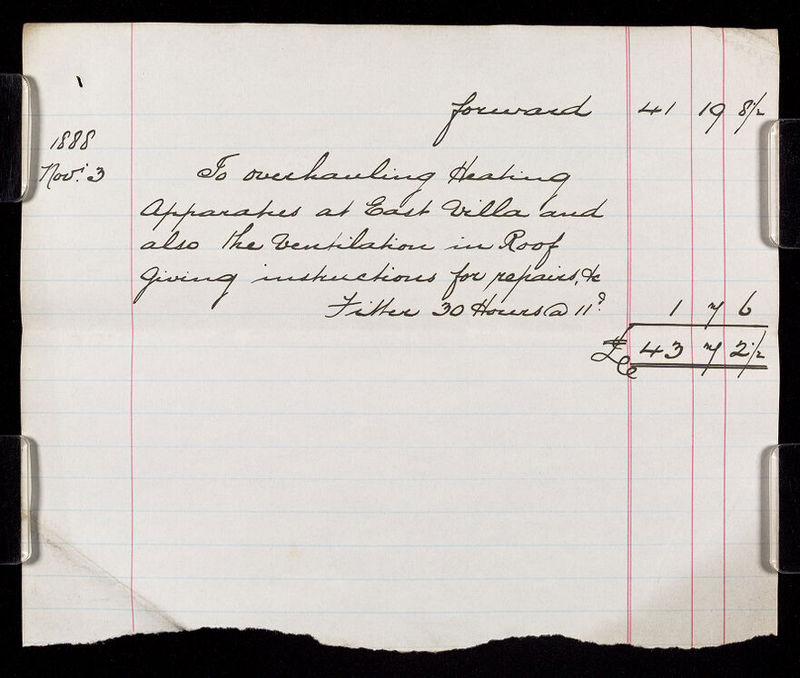 forward 41 19 8½
1888
Novr. 3 To overhauling Heating
Apparatus at East Villa and
also the Ventilation in Roof
giving instructions for repairs, &c
Fitter 30 Hours @ 11d 1 7 6
£ 43 7 2½